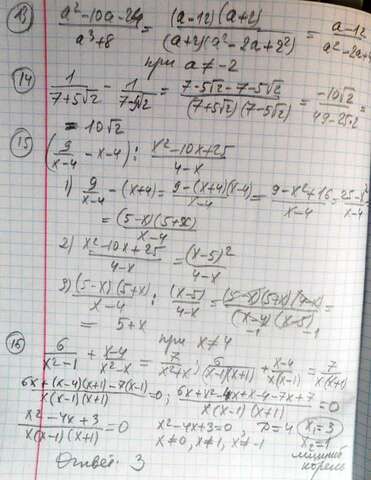 13) (a²-10a-24)/(a³+8) = ((a-12)(a+2))/((a+2)(a²-2a+2²)) = (a-12)/(a²-2a+4)
при a≠-2
14) 1/(7+5√2) - 1/(7-5√2) = (7-5√2-7-5√2)/((7+5√2)(7-5√2)) = (-10√2)/(49-25·2) =
= 10√2
15) (9/(x-4) - x-4) : (x²-10x+25)/(4-x)
1) 9/(x-4) - (x+4) = (9-(x+4)(x-4))/(x-4) = (9-x²+16)/(x-4) = (25-x²)/(x-4)
= ((5-x)(5+x))/(x-4)
2) (x²-10x+25)/(4-x) = (x-5)²/(4-x)
3) ((5-x)(5+x))/(x-4) : (x-5)/(4-x) = ((5-x)(5+x)(4-x))/((x-4)(x-5))
= 5+x
при x≠4
16) 6/(x²-1) + (x-4)/(x²-x) = 7/(x²+x); 6/((x-1)(x+1)) + (x-4)/(x(x-1)) = 7/(x(x+1))
(6x+(x-4)(x+1)-7(x-1))/(x(x-1)(x+1)) = 0; (6x+x²-4x+x-4-7x+7)/(x(x-1)(x+1)) = 0
(x²-4x+3)/(x(x-1)(x+1)) = 0 x²-4x+3=0, D=4 x₁=3
x≠0, x≠1, x≠-1 x₂=1
лишний
корень
Ответ: 3